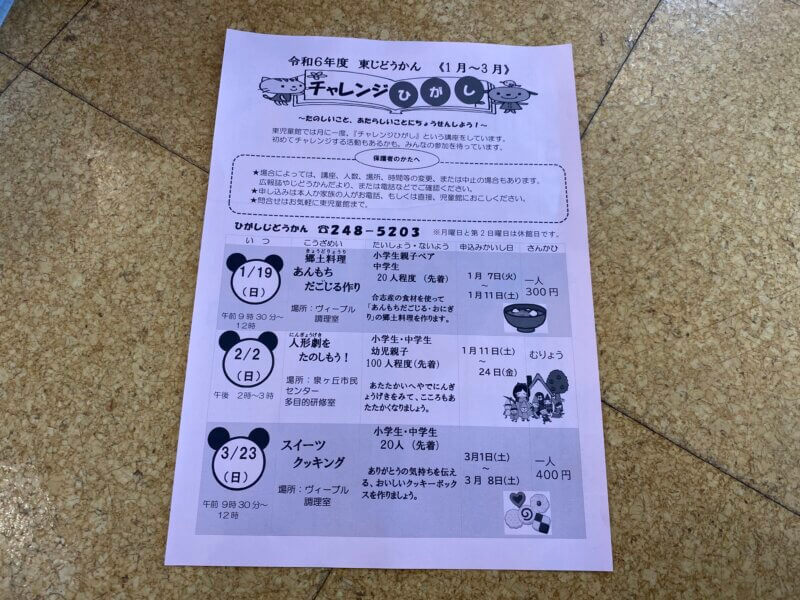 令和6年度 東じどうかん 《1月～3月》
チャレンジひがし
～たのしいこと、あたらしいことにちょうせんしよう！～
東児童館では月に一度、『チャレンジひがし』という講座をしています。
初めてチャレンジする活動もあるかも。みんなの参加を待っています。
保護者のかたへ
★場合によっては、講座、人数、場所、時間等の変更、または中止の場合もあります。
広報誌やじどうかんだより、または電話などでご確認ください。
★申し込みは本人か家族の人がお電話、もしくは直接、児童館におこしください。
★問合せはお気軽に東児童館まで。
ひがしじどうかん ☎248-5203 ※月曜日と第2日曜日は休館日です。
いつ こうざめい たいしょう・ないよう 申込みかいし日 さんかひ
1/19
（日）
午前9時30分～
12時
きょうどりょうり
郷土料理
あんもち
だごじる作り
場所：ヴィーブル
調理室
小学生親子ペア
中学生
20人程度（先着）
合志産の食材を使って
「あんもちだごじる・おにぎ
り」の郷土料理を作ります。
1月7日(火)
～
1月11日(土)
一人
300円
2/2
（日）
午後 2時～3時
にんぎょうげき
人形劇を
たのしもう！
場所：泉ヶ丘市民
センター
多目的研修室
小学生・中学生
幼児親子
100人程度(先着)
あたたかいへやでにんぎ
ょうげきをみて、こころもあ
たたかくなりましょう。
1月11日(土)
～
24日(金)
むりょう
3/23
（日）
午前9時30分～
12時
スイーツ
クッキング
場所：ヴィーブル
調理室
小学生・中学生
20人（先着）
ありがとうの気持ちを伝え
る、おいしいクッキーボック
スを作りましょう。
3月1日(土)
～
3月 8日(土)
一人
400円